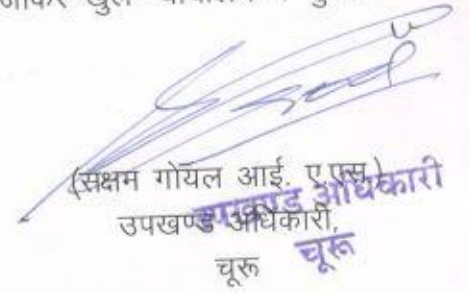 जाकर खुले
(सक्षम गोयल आई. ए.एस.)
उपखण्ड अधिकारी,
चूरू
उपखण्ड अधिकारी
चूरू